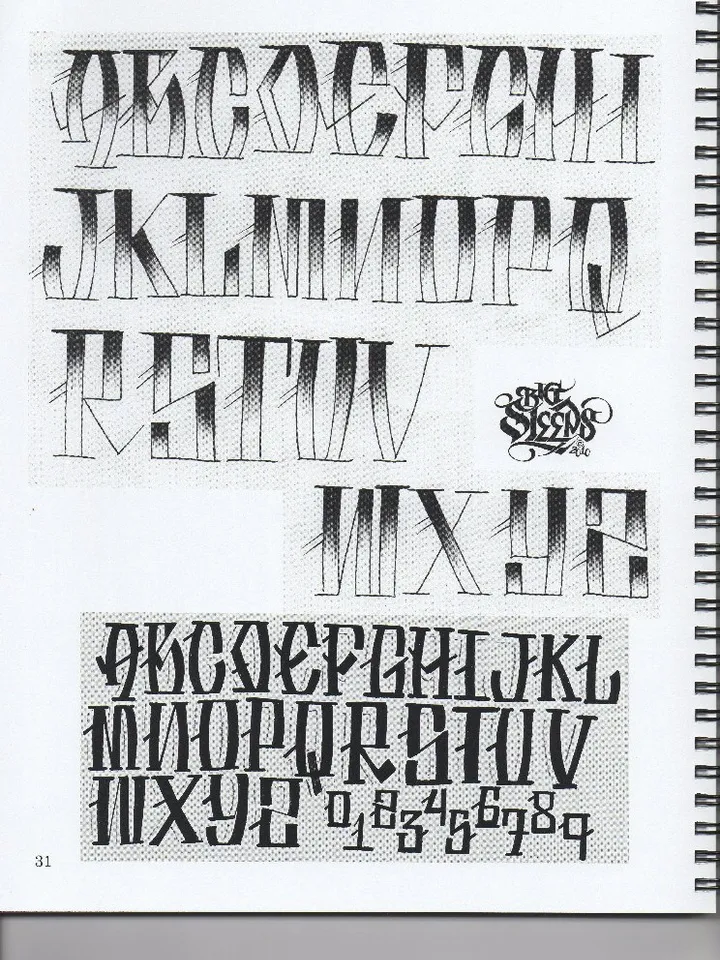 ABCDEFGHI
JKLMNOPQ
RSTUV
BIG
SLEEPS
©
2010
WXYZ
ABCDEFGHIJKL
MNOPQRSTUV
WXYZ 0123456789
31